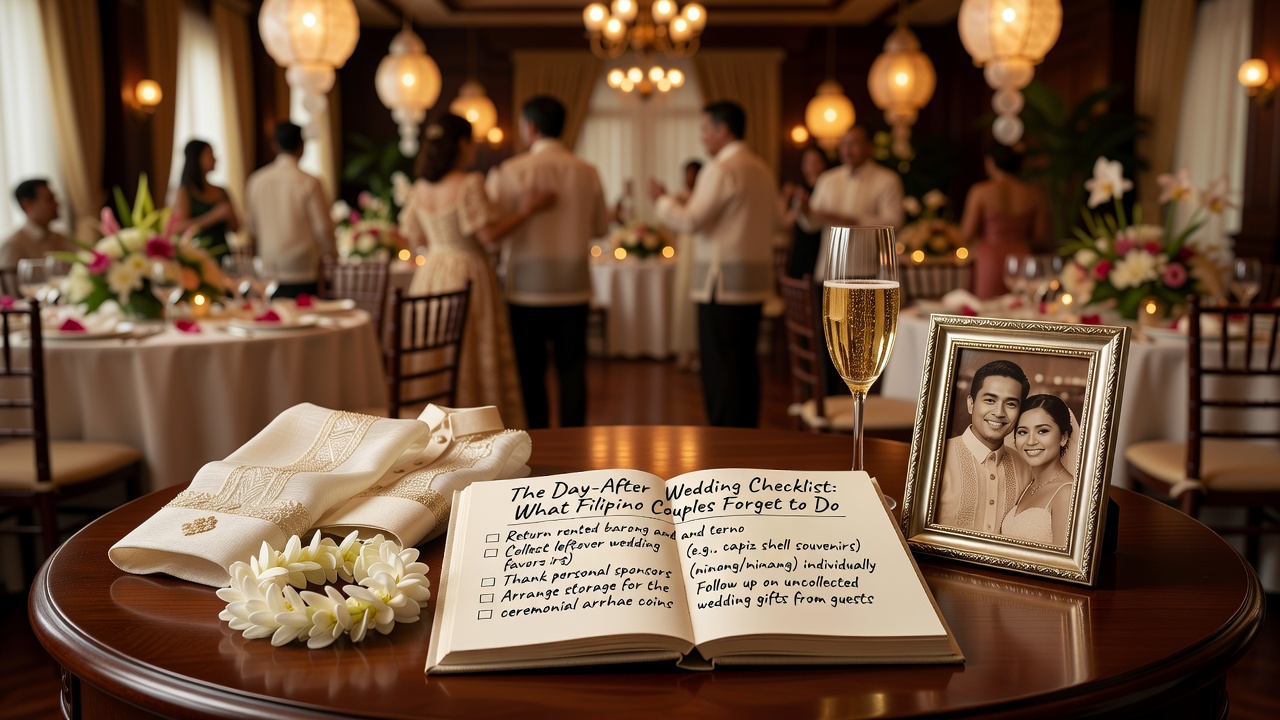 The Day-After Wedding Checklist:
What Filipino Couples Forget to Do
Return rented barong and and terno
Collest leftover wedding (e.g., capiz shell souvenirs)
favors irs) (ninong/ninang) individually
Thank personal sponsors Follow up on uncollected
Arrange storage for the wedding gifts from guests
ceremonial arrhae coins